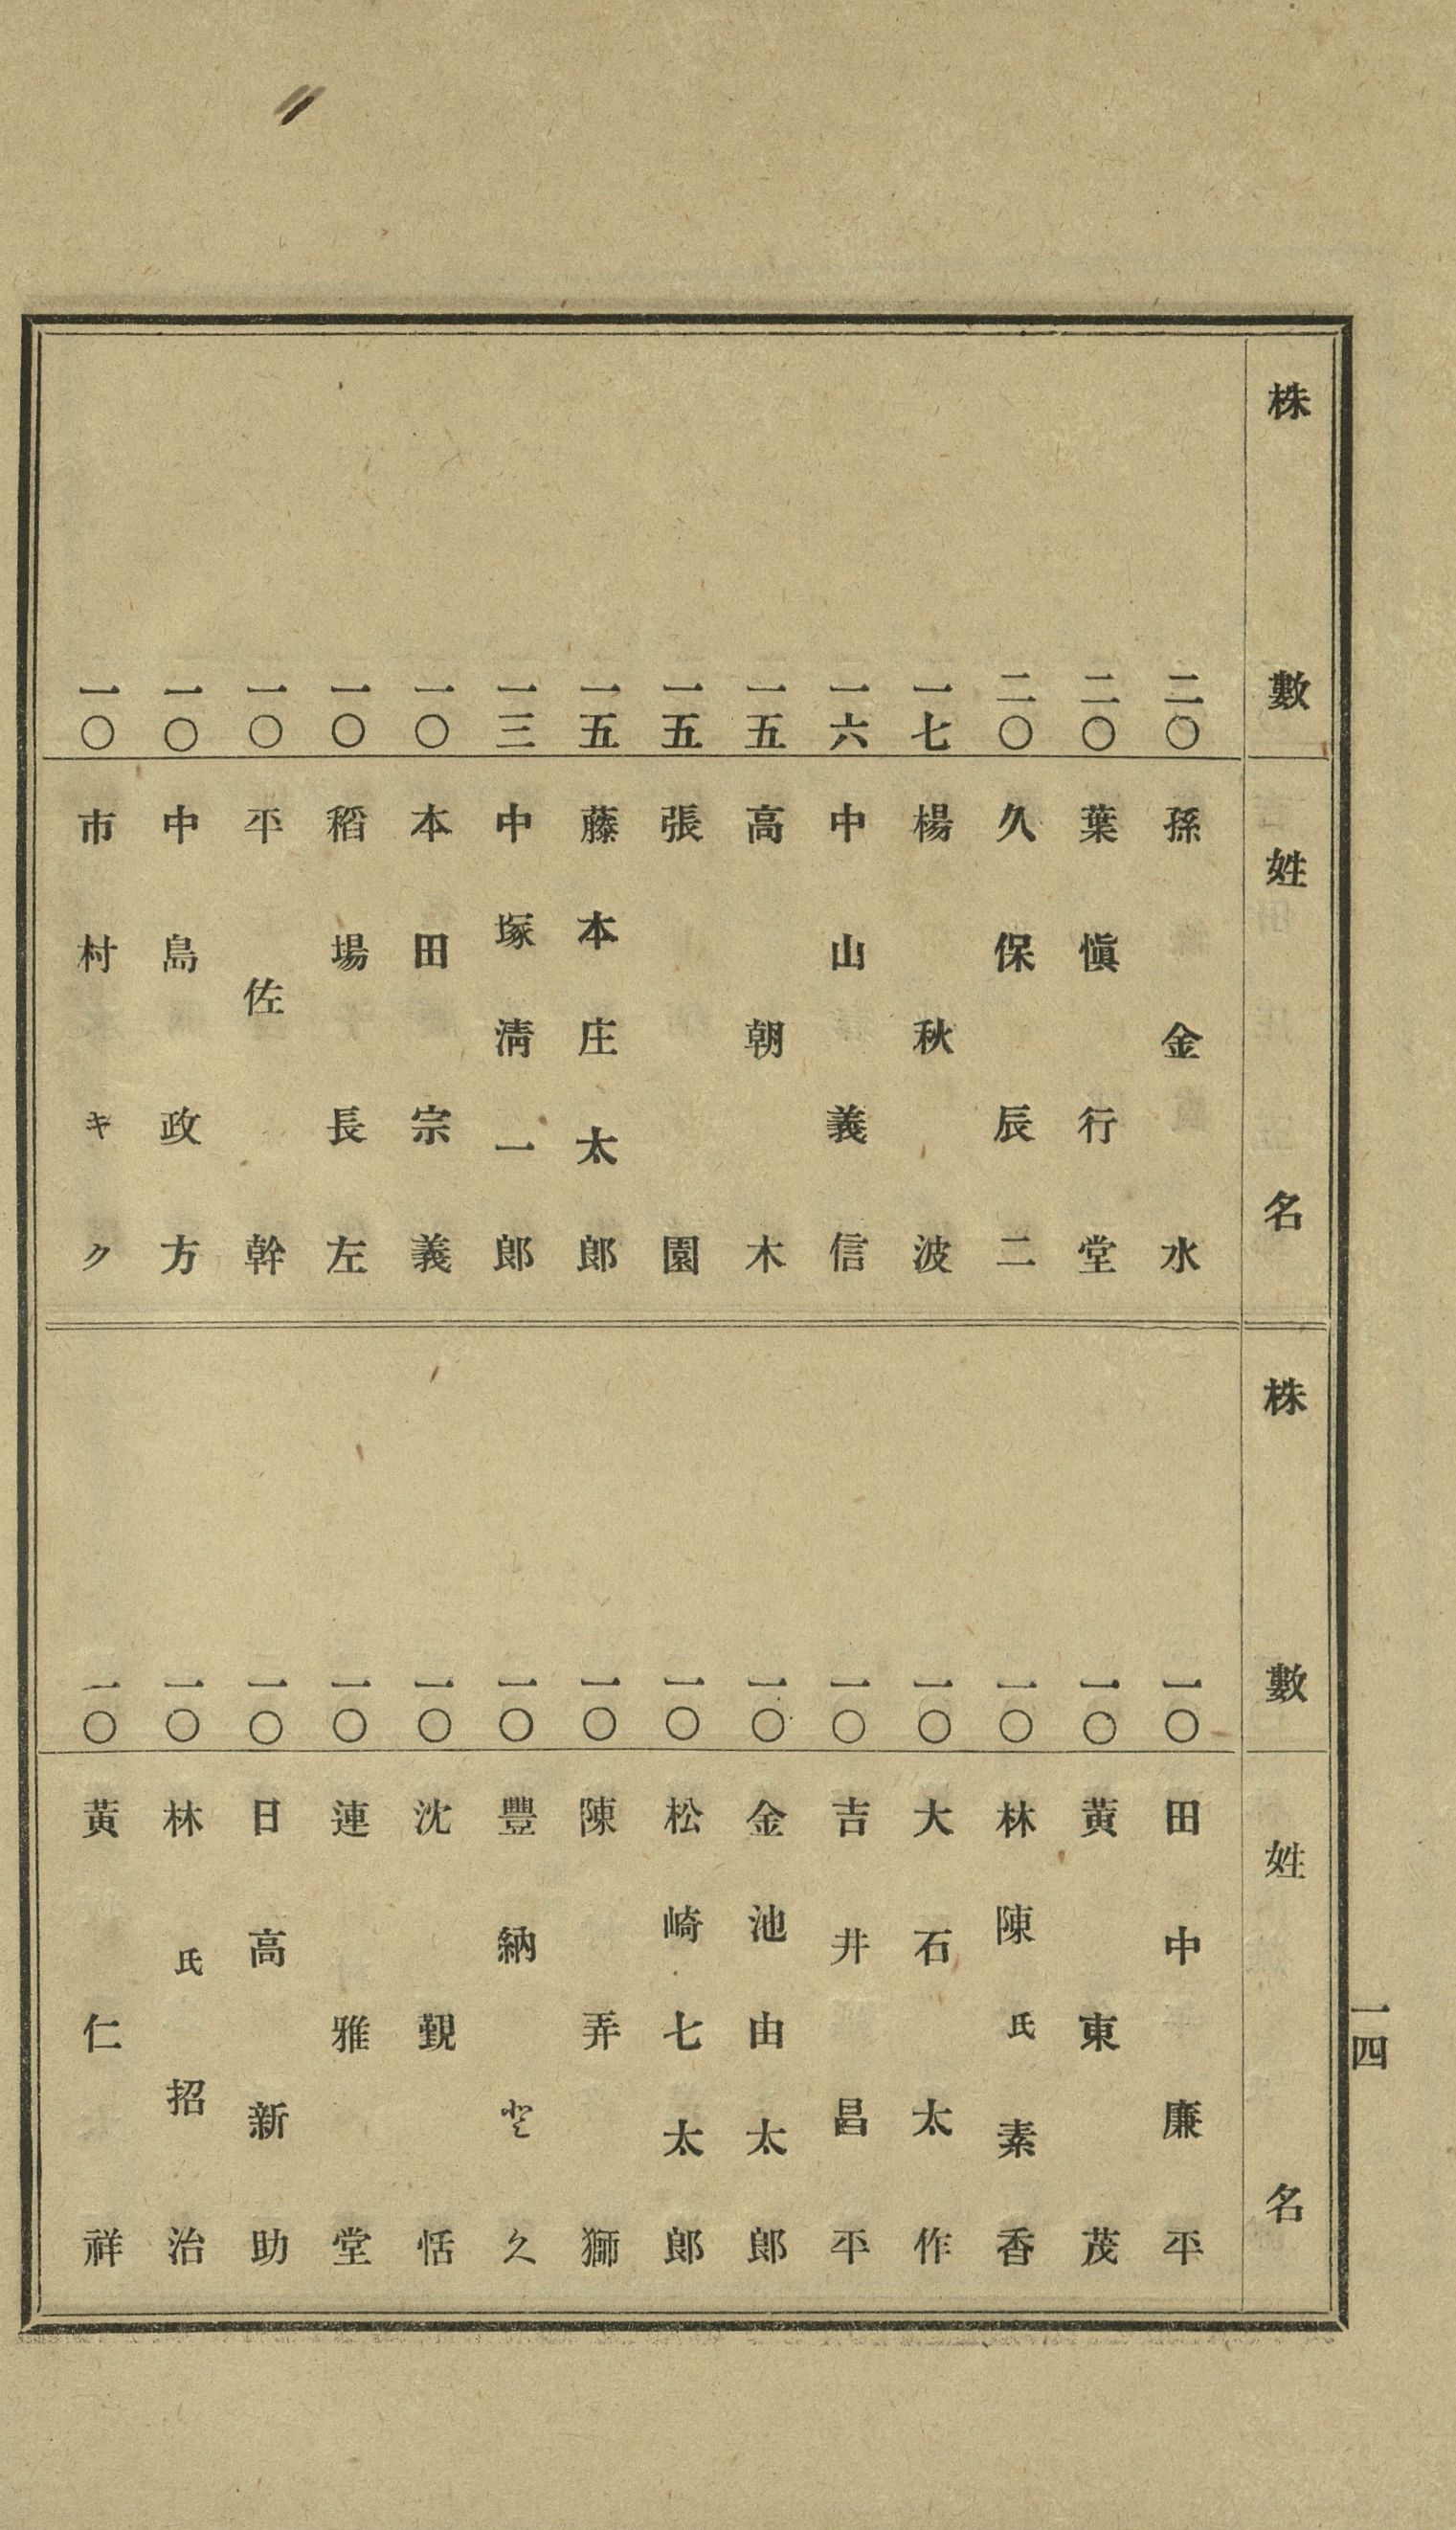 株數 姓名
二〇 孫金水
二〇 葉愼行堂
二〇 久保辰二
一七 楊秋波
一六 中山義信
一五 高朝木
一五 張園
一五 藤本庄太郎
一三 中塚淸一郎
一〇 本田宗義
一〇 稻場長左
一〇 平佐幹
一〇 中島政方
一〇 市村キク
株數 姓名
一〇 田中廉平
一〇 黃東茂
一〇 林陳氏素香
一〇 大石太作
一〇 吉井昌平
一〇 金池由太郎
一〇 松崎七太郎
一〇 陳弄獅
一〇 豐納久
一〇 沈覲恬
一〇 連雅堂
一〇 日高新助
一〇 林氏招治
一〇 黃仁祥
一四